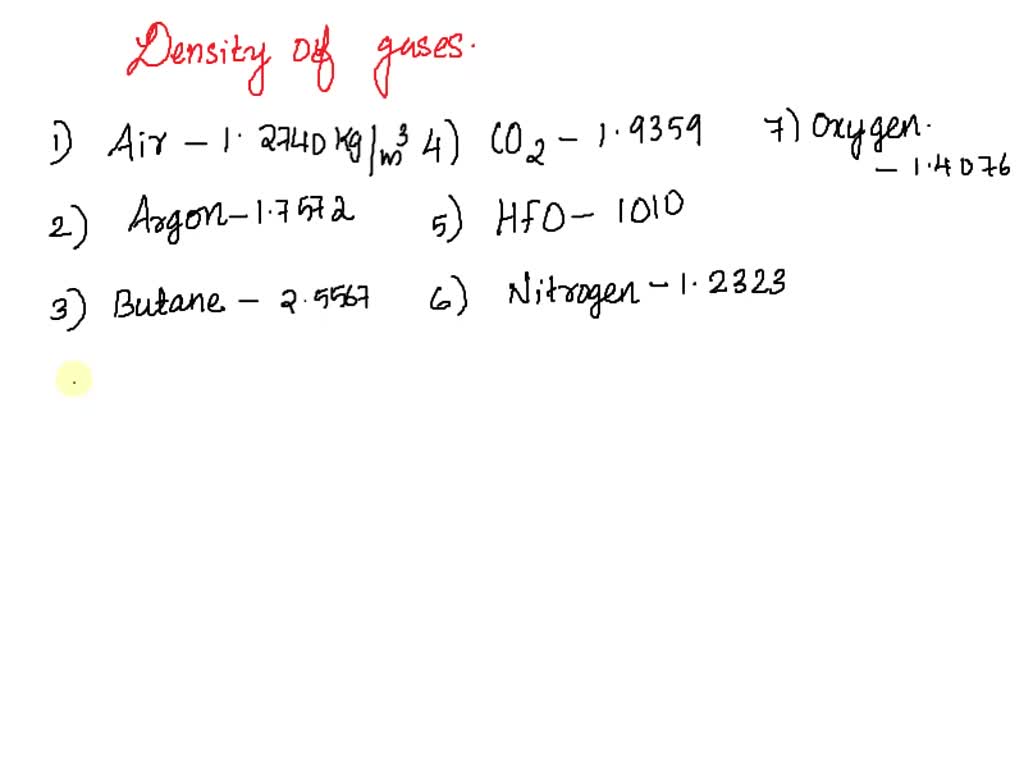 Density of gases.
1) Air - 1.2740 kg/m³ 4) CO2 - 1.9359 7) Oxygen.
- 1.4076
2) Argon - 1.7572 5) HfO - 1010
3) Butane - 2.5567 6) Nitrogen - 1.2323